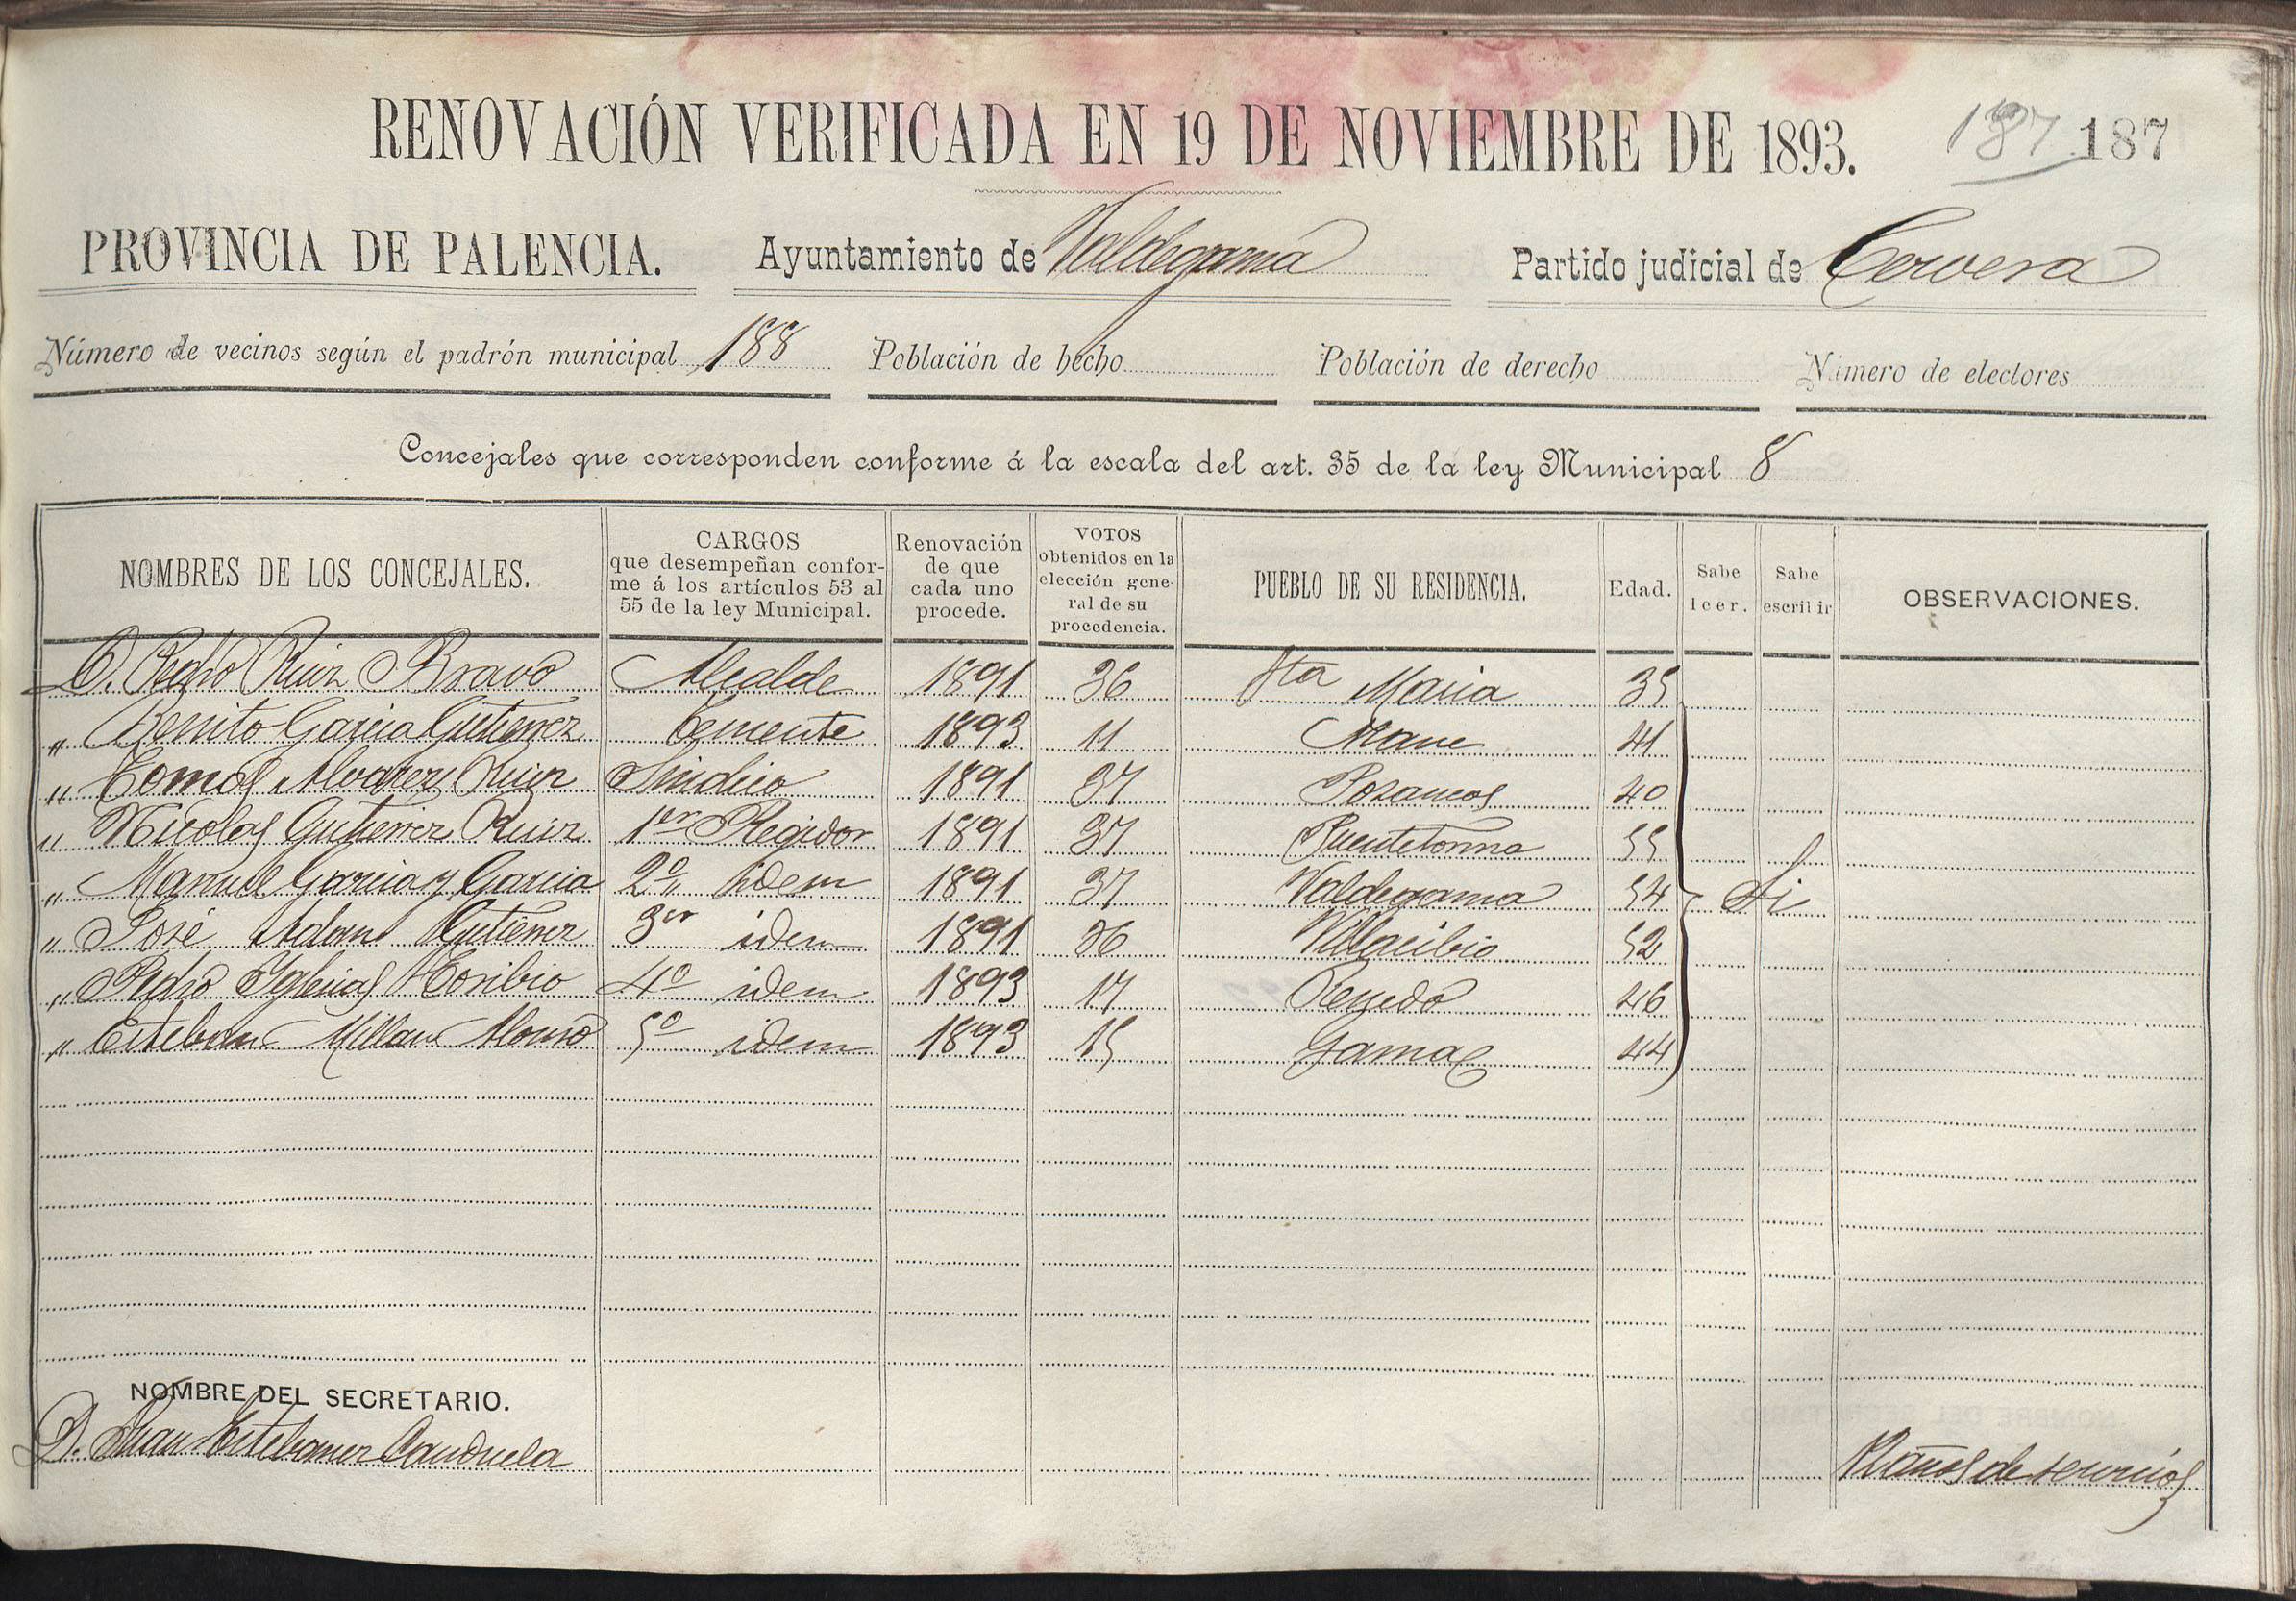 RENOVACIÓN VERIFICADA EN 19 DE NOVIEMBRE DE 1893. 187 187
PROVINCIA DE PALENCIA. Ayuntamiento de Valdegama Partido judicial de Cervera
Número de vecinos según el padrón municipal 188 Población de hecho Población de derecho Número de electores
Concejales que corresponden conforme á la escala del art. 35 de la ley Municipal 8
NOMBRES DE LOS CONCEJALES. CARGOS que desempeñan conforme á los artículos 53 al 55 de la ley Municipal. Renovación de que cada uno procede. VOTOS obtenidos en la elección general de su procedencia. PUEBLO DE SU RESIDENCIA. Edad. Sabe leer. Sabe escribir OBSERVACIONES.
D. Pedro Ruiz Bravo Alcalde 1891 36 Sta Maria 35
" Benito Garcia Gutierrez Teniente 1893 11 Mave 41
" Tomas Alvarez Ruiz Sindico 1891 37 Pozancos 40
" Nicolas Gutierrez Ruiz 1er Regidor 1891 37 Puentetoma 55
" Manuel Garcia y Garcia 2º idem 1891 37 Valdegama 54 Si
" José Gutierrez 3er idem 1891 36 Villacibio 52
" Pedro Yglesias Toribio 4º idem 1893 17 Renedo 46
" Esteban Millan Alonso 5º idem 1893 15 Gama 44
NOMBRE DEL SECRETARIO.
D. Juan Estebanez Canduela 12 años de servicios